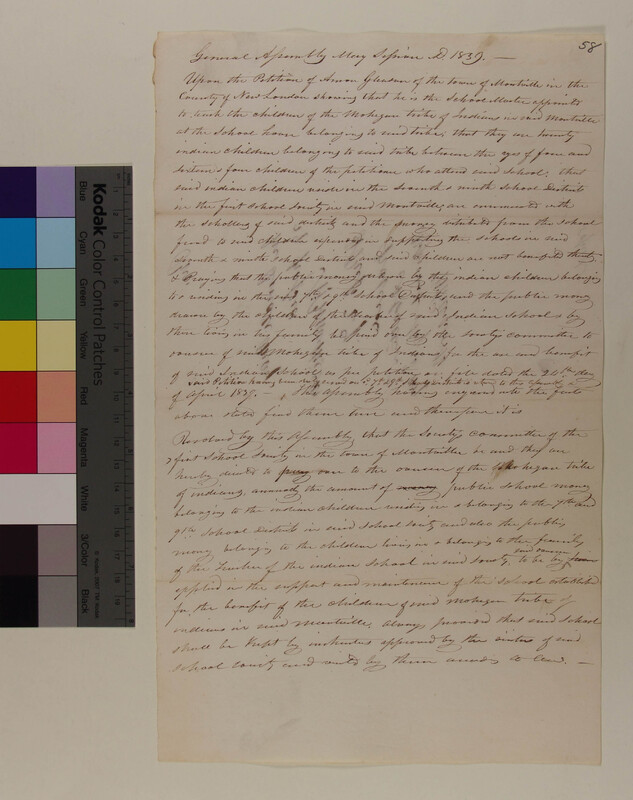 58
General Assembly May Session AD 1839. —
Upon the Petition of Anson Gleason of the town of Montville in the
County of New London showing that he is the School Master appointed
to teach the children of the Mohegan tribe of Indians in said Montville
at the School house belonging to said tribe; that they are twenty
indian children belonging to said tribe between the ages of four and
sixteen & four children of the petitioner who attend said school; that
said indian children reside in the Seventh & ninth School Districts
in the first School Society in said Montville, are enumerated with
the scholars of said districts and the money distributed from the school
fund to said children expended in supporting the schools in said
seventh & ninth school Districts and said children are not benefited thereby
& Praying that the public money drawn by the indian children belonging
to & residing in the said 7th & 9th School Districts, and the public money
drawn by the children of the teacher of said Indian School by
them living in his family be paid over by the society committee to
overseer of said Mohegan tribe of Indians for the use and benefit
of said Indian School as per petition on file dated the 24th day
of April 1839. — This Assembly having enquired into the facts
above stated find them true and thereupon it is
Resolved by this Assembly that the Society Committee of the
first School Society in the town of Montville be and they are
hereby directed to pay over to the overseer of the Mohegan tribe
of indians, annually the amount of money public school money
belonging to the indian children residing in & belonging to the 7th and
9th School Districts in said School Society and also the public
money belonging to the children living in & belonging to the family
of the Teacher of the indian School in said Society, to be by
said overseer
applied in the support and maintenance of the school established
for the benefit of the children of said Mohegan tribe of
indians in said Montville, always provided that said School
shall be kept by instructors approved by the visitors of said
school society and visited by them according to law. —
Kodak Color Control Patches
Blue
Cyan
Green
Yellow
Red
Magenta
White
3/Color
Black